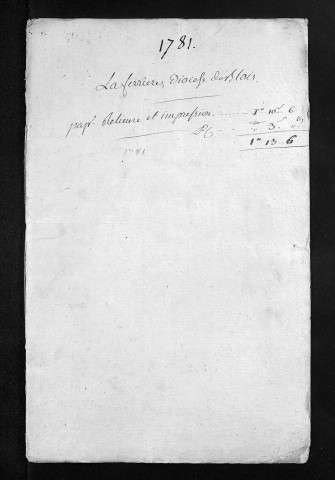 1781.
La ferriere, Diocese de Blois.
papr. Relieure et impression ........ 1# 10s 6
3
1# 13. 6
1781